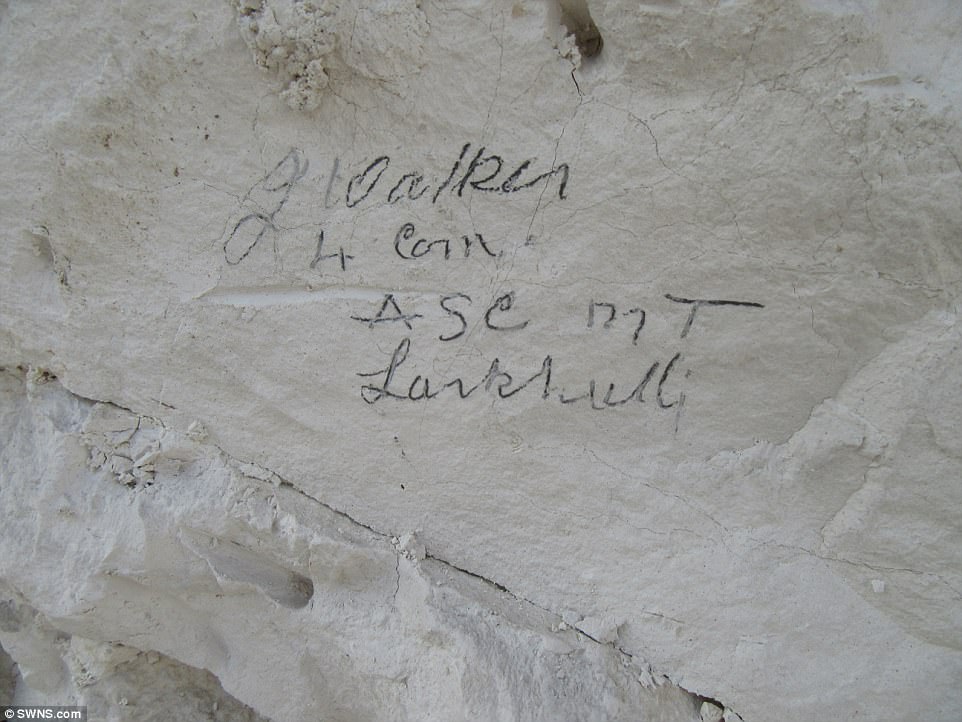 J Walker
4 Com
ASC MT
Larkhill
© SWNS.com